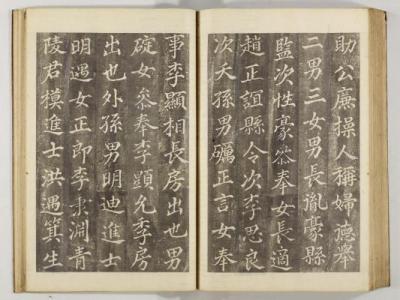 助公廉操人稱婦德舉
二男三女男長胤豪縣
監次性豪叅奉女長適
趙正誼縣令次李思良
次夭孫男礪正言女奉
事李顯相長房出也男
碇女叅奉李顕允季房
出也外孫男明迪進士
明遇女正郎李淵青
陵君模進士洪遇箕生